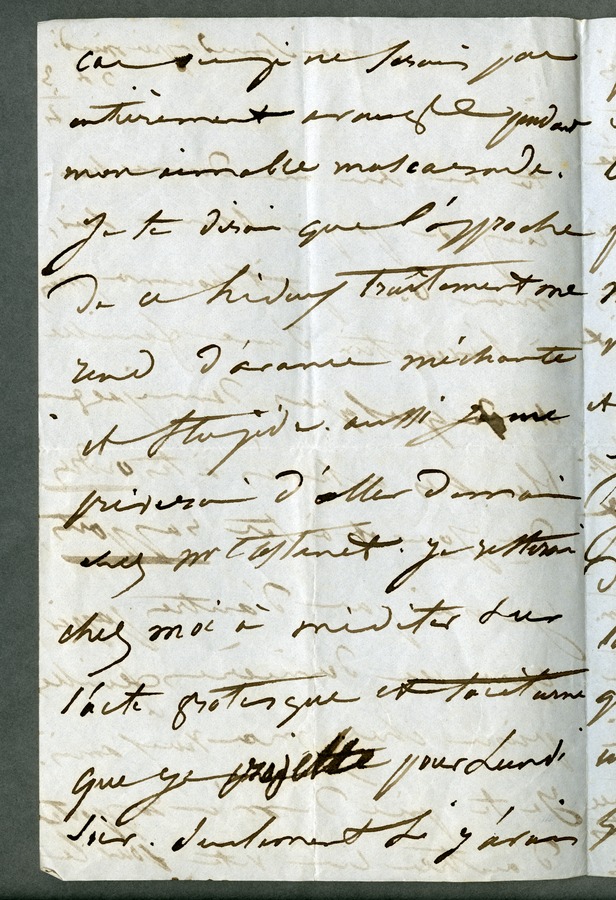 car si je ne serais pas
entièrement aveugle pendant
mon aimable mascarade.
Je te disais que l'approche
de ce hideux traitement me
rend d'avance méchante
et stupide. aussi je me
priverai d'aller demain
chez mr Castinet. je resterai
chez moi à méditer sur
l'acte grotesque et taciturne
que je projette pour Lundi
Soir. Seulement Si j'avais